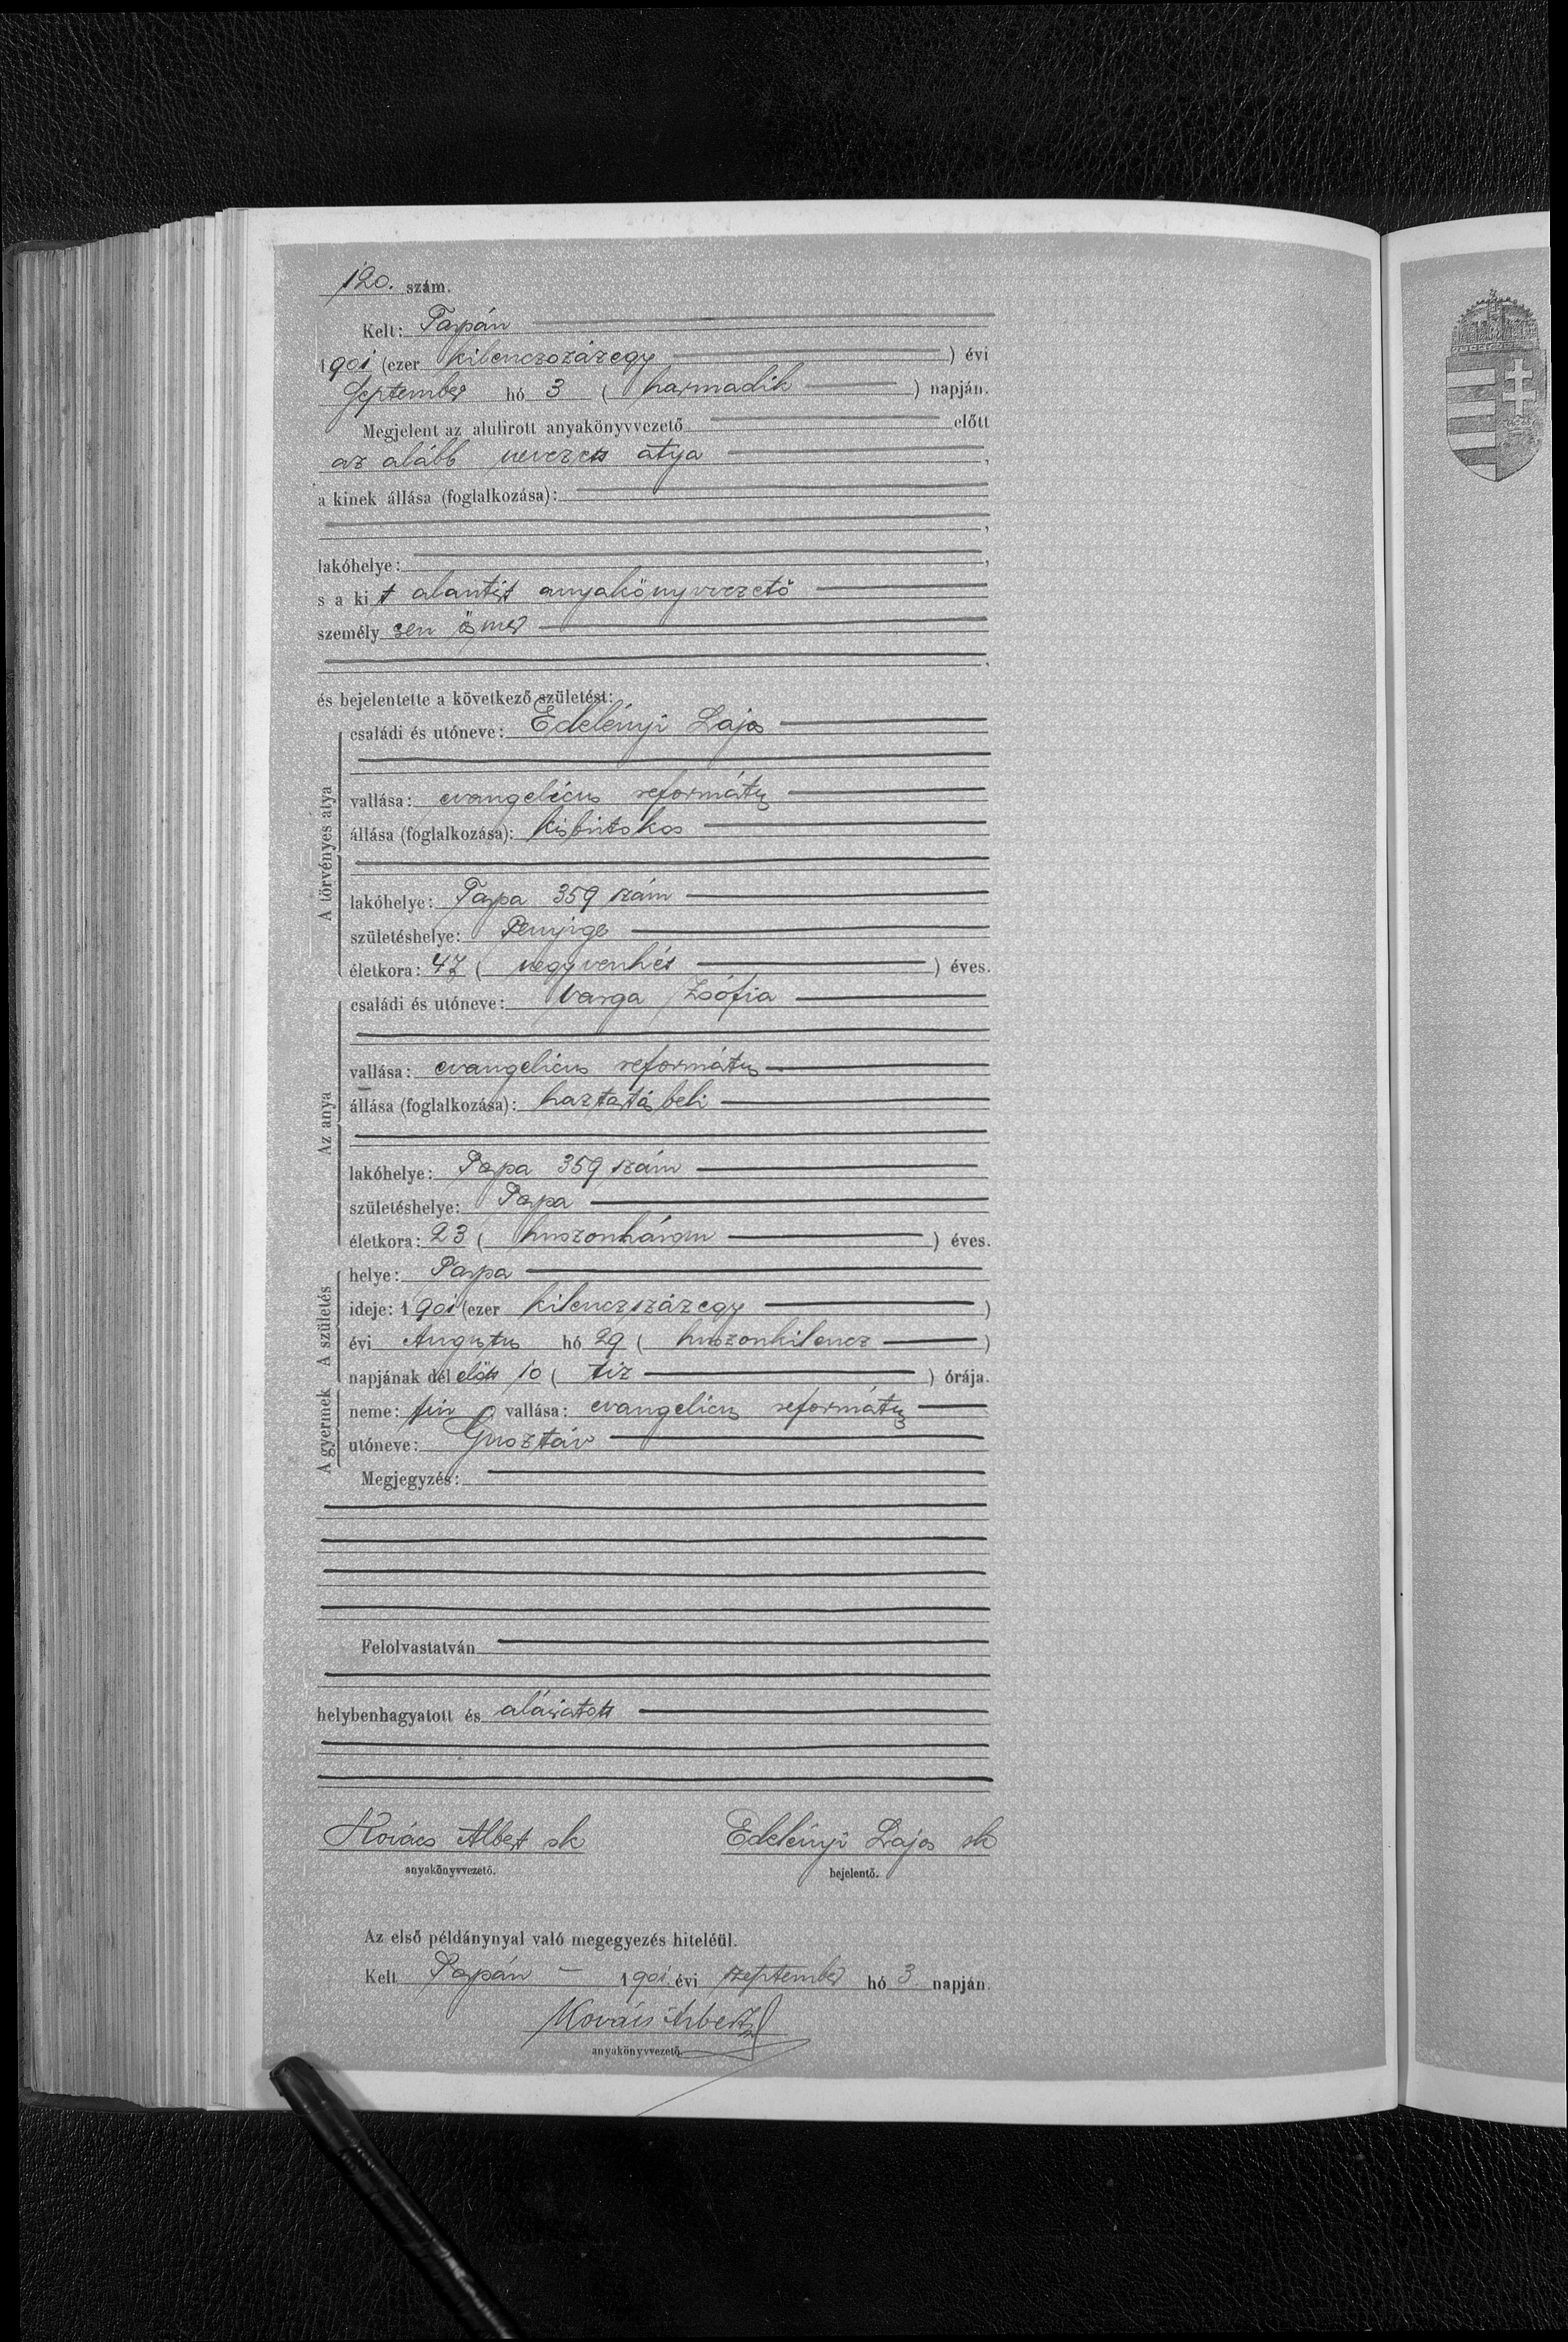 120. szám.
Kelt: Tarpán
1901 (ezer kilenczszázegy) évi
September hó 3 (harmadik) napján.
Megjelent az alulirott anyakönyvvezető előtt
az alább nevezett atya,
a kinek állása (foglalkozása):
,
lakóhelye:,
s a kit alantirt anyakönyvvezető
személyesen ösmer
.
és bejelentette a következő születést:
A törvényes atya
családi és utóneve: Edelényi Lajos
vallása: evangelicus református
állása (foglalkozása): kisbirtokos
lakóhelye: Tarpa 359 szám
születéshelye: Penyige
életkora: 47 (negyvenhét) éves.
Az anya
családi és utóneve: Varga Zsófia
vallása: evangelicus református
állása (foglalkozása): háztartásbeli
lakóhelye: Tarpa 359 szám
születéshelye: Tarpa
életkora: 23 (huszonhárom) éves.
A születés
helye: Tarpa
ideje: 1901 (ezer kilenczszázegy)
évi Augustus hó 29 (huszonkilencz)
napjának délelőtt 10 (tiz) órája.
A gyermek
neme: fiu vallása: evangelicus református
utóneve: Gusztáv
Megjegyzés:
Felolvastatván
helybenhagyatott és aláiratott
Kovács Albert sk Edelényi Lajos sk
anyakönyvvezető. bejelentő.
Az első példánynyal való megegyezés hiteléül.
Kelt Tarpán – 1901. évi szeptember hó 3. napján.
Kovács Albert
anyakönyvvezető.